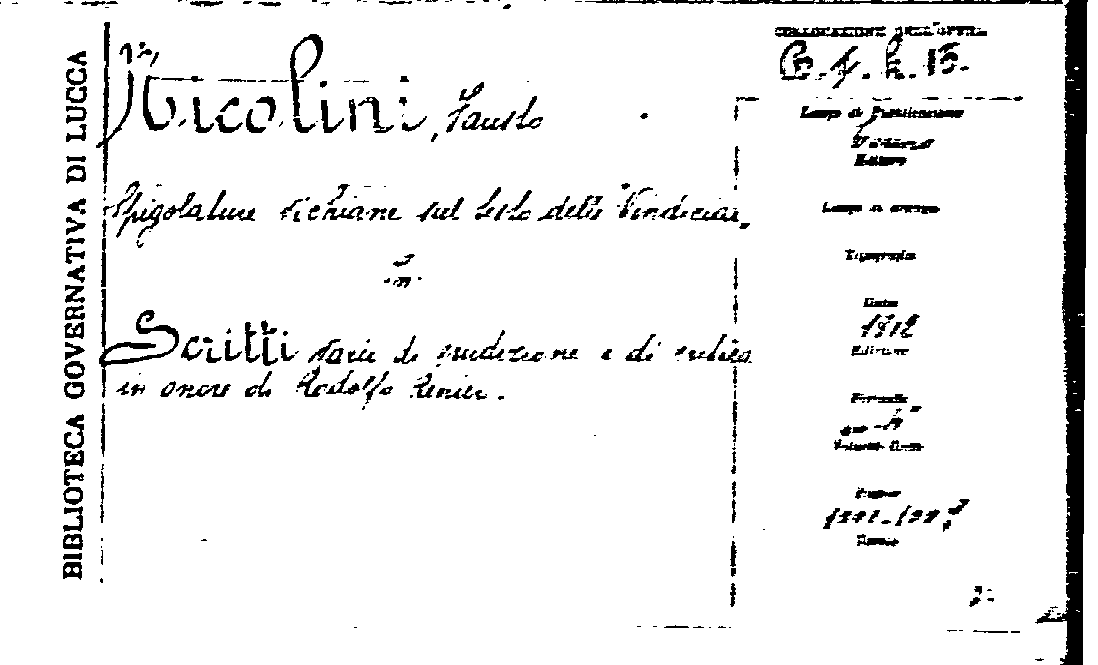 BIBLIOTECA GOVERNATIVA DI LUCCA
Nicolini, Fausto
Spigolature vichiane sul testo delle "Vindiciae"
in
Scritti varii di erudizione e di critica
in onore di Rodolfo Renier.
COLLOCAZIONE DELL'OPERA
Luogo di Pubblicazione
Torino
Editore
Luogo di stampa
Tipografia
Data
1912
Edizione
Formato
Volumi
Pagine